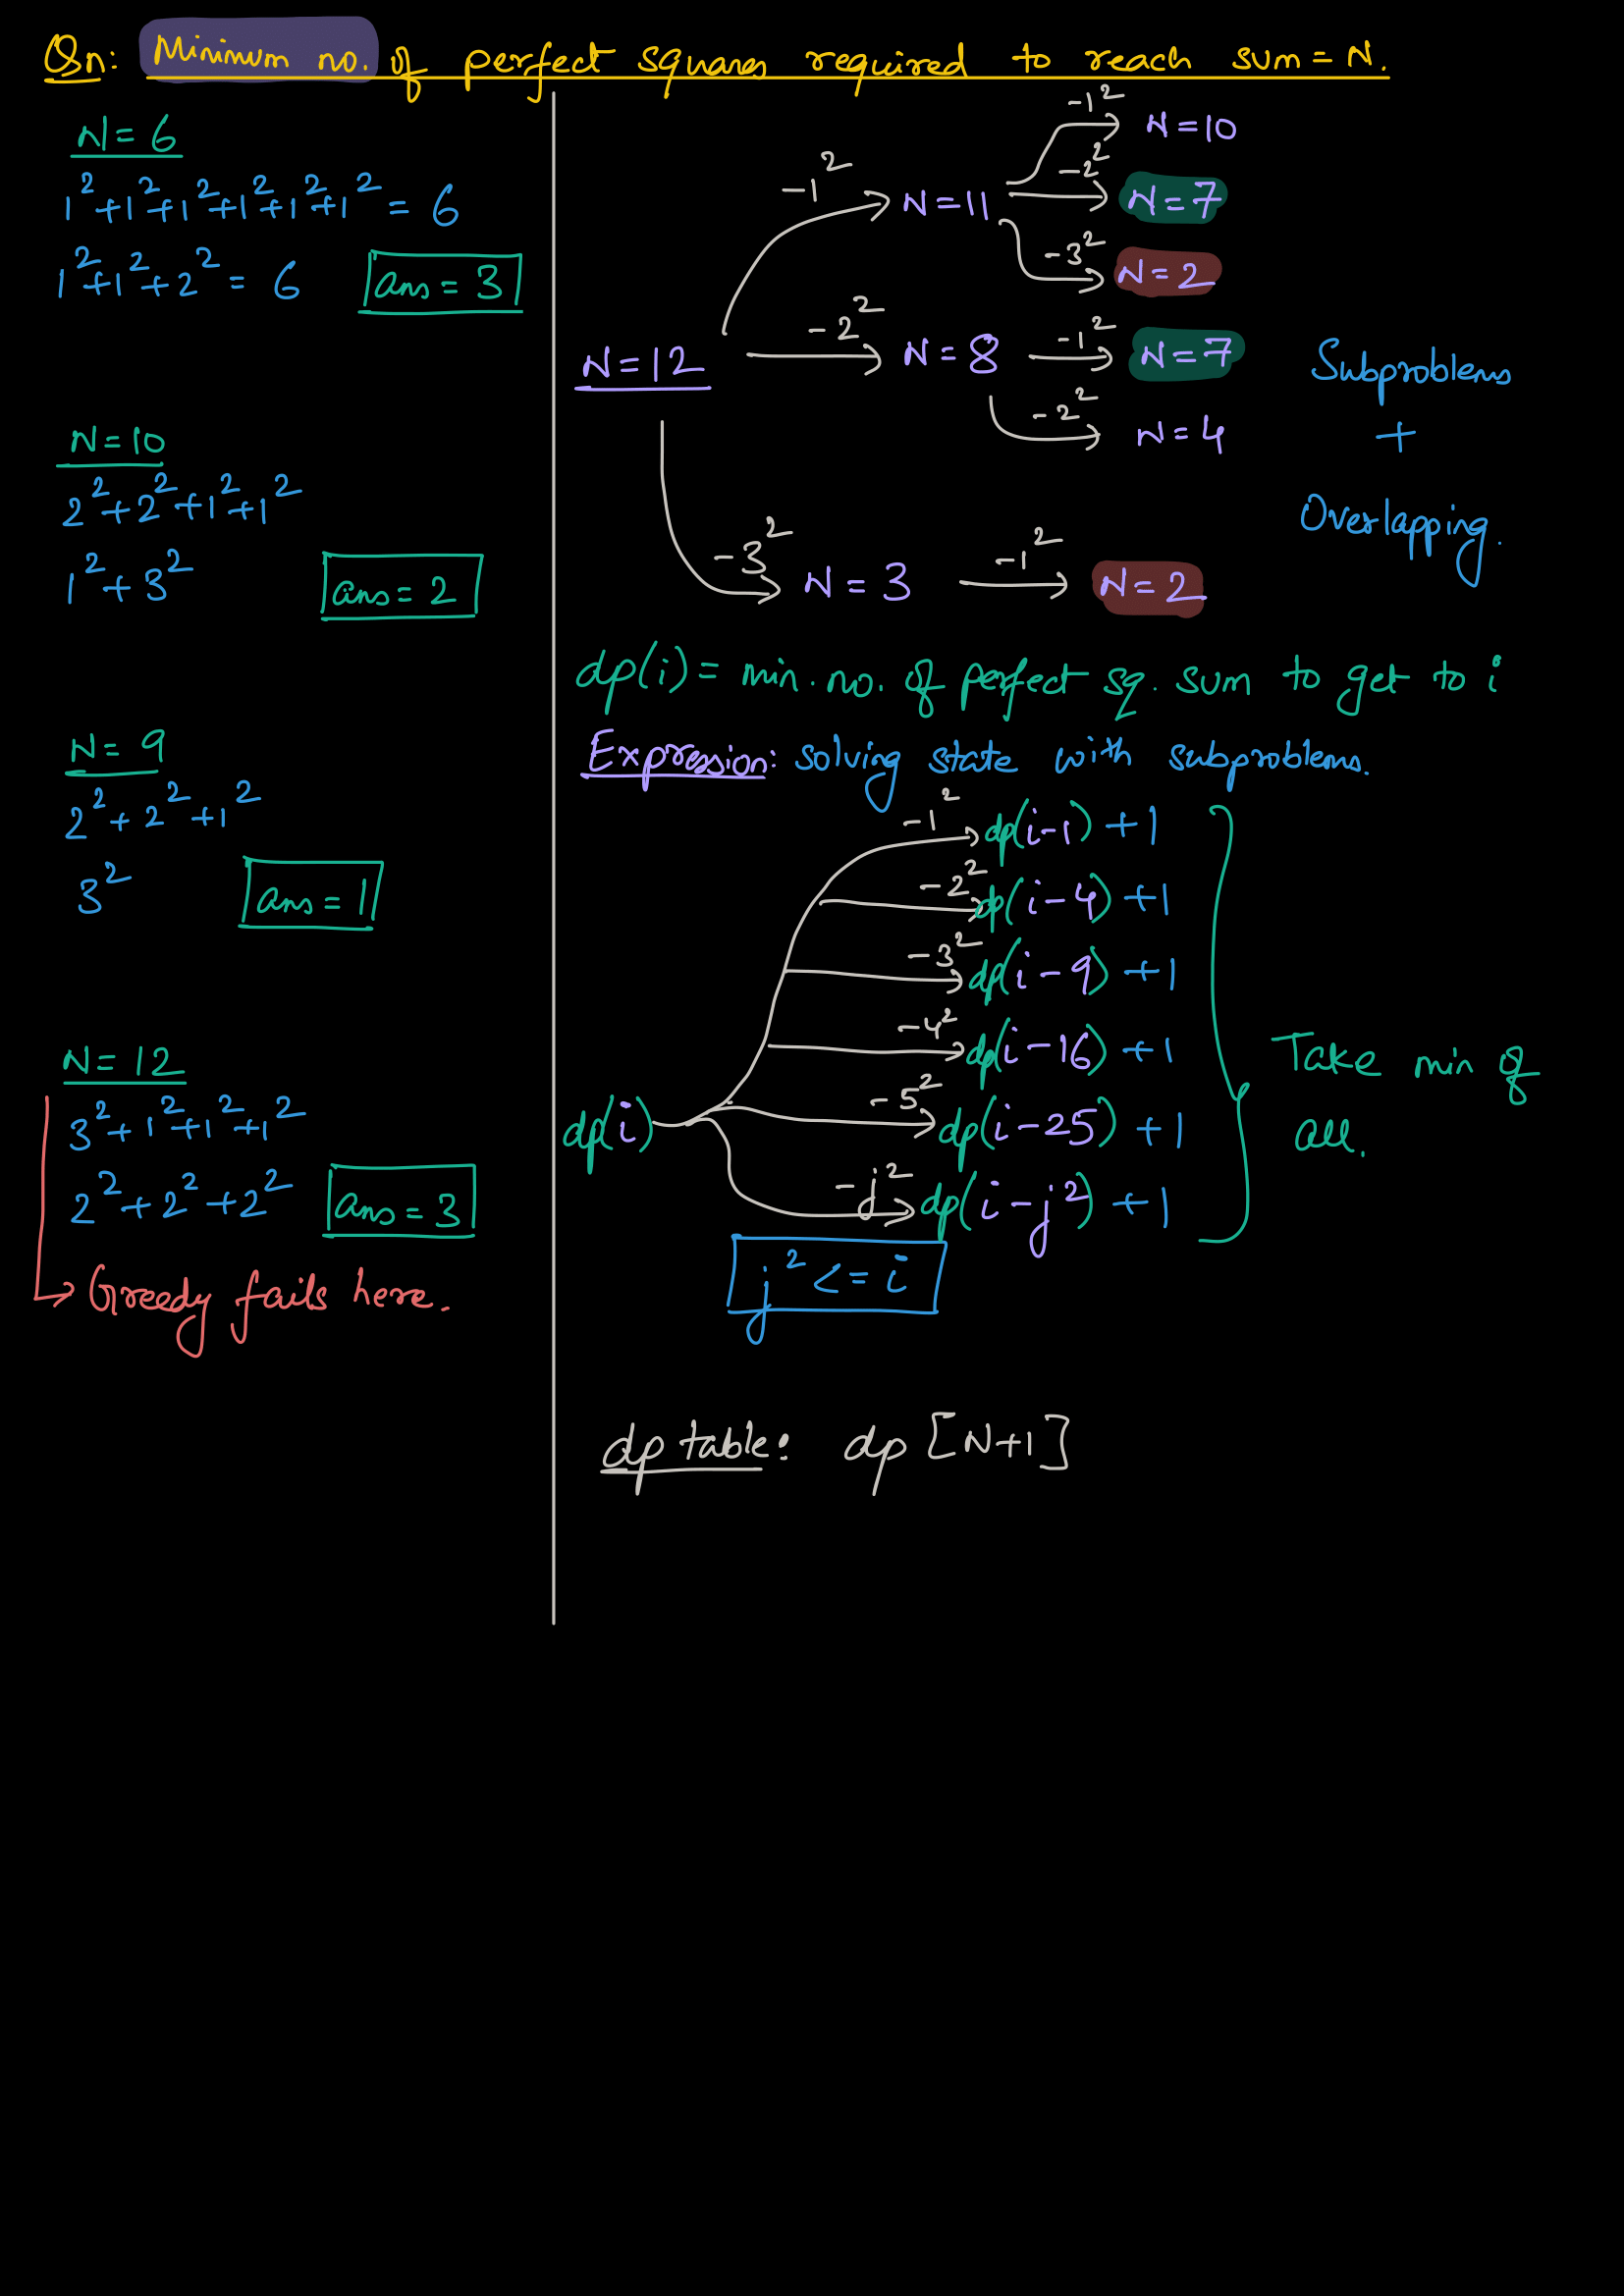 Qn: Minimum no. of perfect squares required to reach sum = N.
N = 6
1² + 1² + 1² + 1² + 1² + 1² = 6
1² + 1² + 2² = 6
ans = 3
N = 10
2² + 2² + 1² + 1²
1² + 3²
ans = 2
N = 9
2² + 2² + 1²
3²
ans = 1
N = 12
3² + 1² + 1² + 1²
2² + 2² + 2²
ans = 3
Greedy fails here.
-1² N = 10
-1² N = 11 -2² N = 7
-3² N = 2
N = 12 -2² N = 8 -1² N = 7
-2² N = 4
-3² N = 3 -1² N = 2
Subproblems
+
Overlapping.
dp(i) = min. no. of perfect sq. sum to get to i
Expression: solving state with subproblems.
-1² dp(i-1) + 1
-2² dp(i-4) + 1
-3² dp(i-9) + 1
-4² dp(i-16) + 1
dp(i) -5² dp(i-25) + 1
-j² dp(i-j²) + 1
Take min of
all.
j² <= i
dp table: dp [N+1]